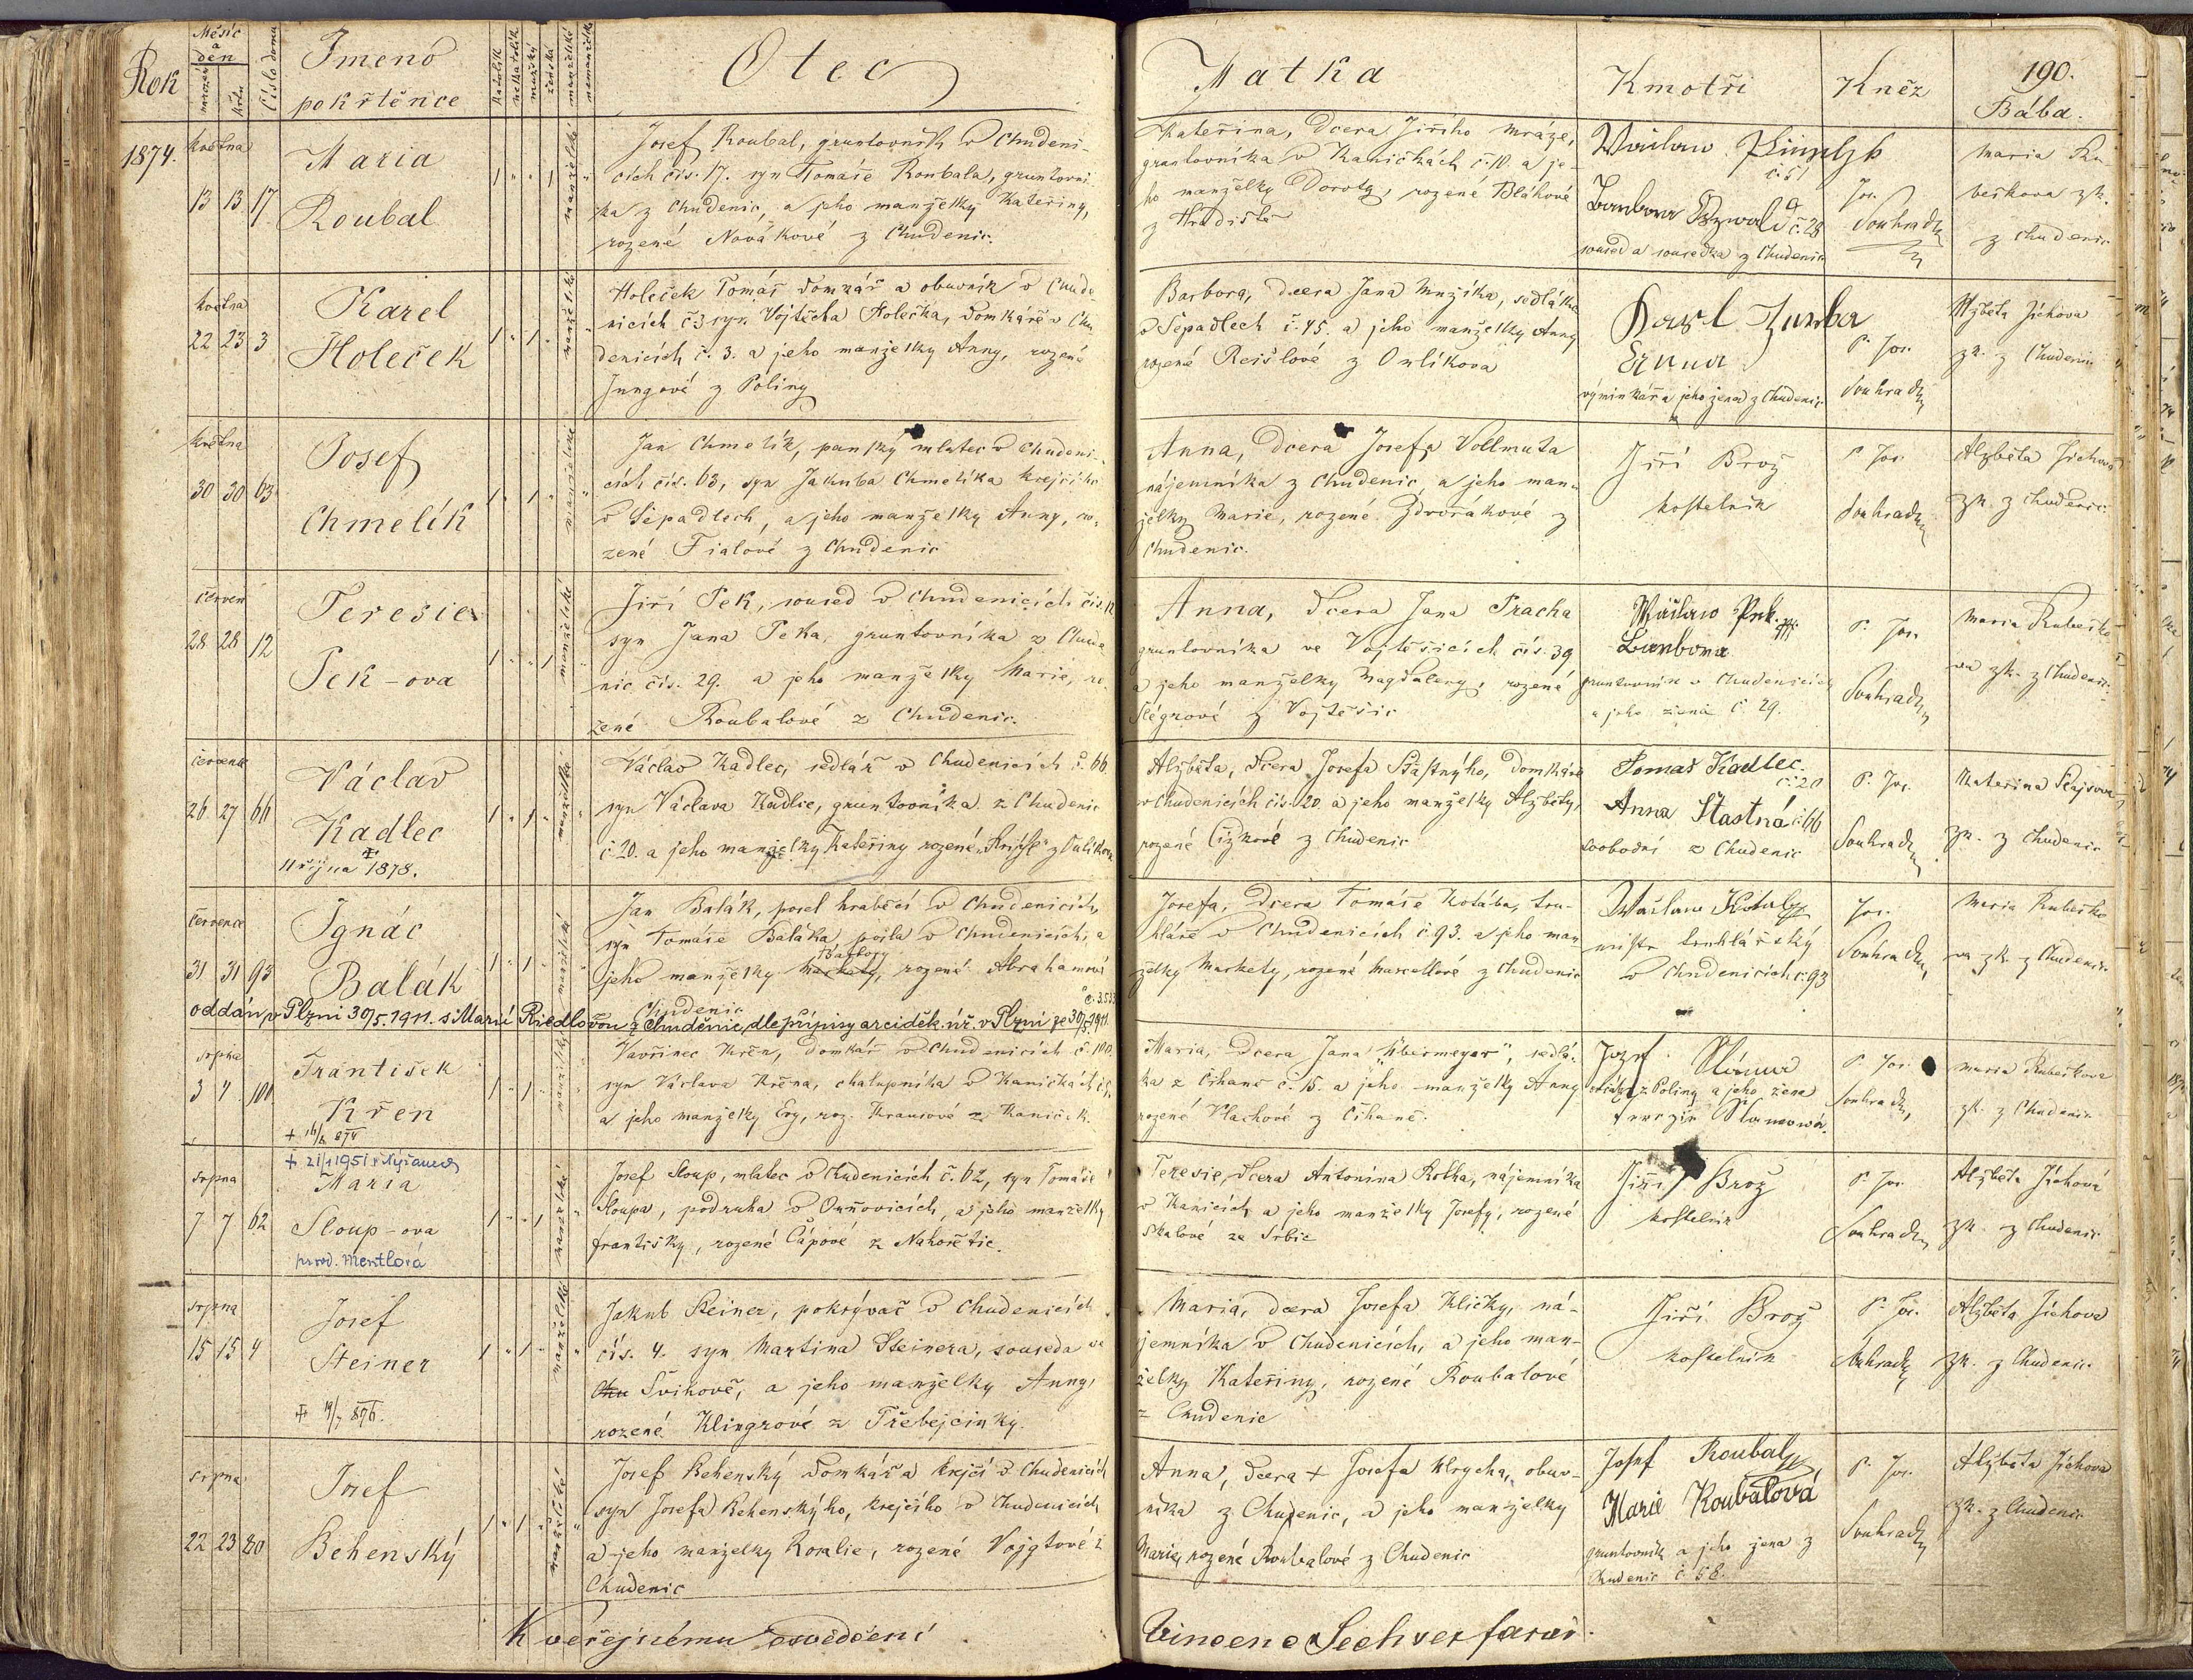 Rok
Měsíc
a
den
narození
křtu
Číslo domu
Jmeno
pokřtěnce
Katolík
nekatolík
mužský
ženská
manželské
nemanželské
Otec
Matka
Kmotři
Kněz
190.
Bába.
1874.
května
13 13 17
Maria
Roubal
1 " " 1 manželské "
Josef Roubal, gruntovník v Chudeni-
cích čís. 17. syn Tomáše Roubala, gruntovní-
ka z Chudenic, a jeho manželky Kateřiny,
rozené Novákové z Chudenic.
Kateřina, Dcera Jiřího Mráze,
gruntovníka v Kaničkách č. 10. a je-
ho manželky Doroty, rozené Bláhové
z Hradiště
Wáclaw
č. 51
Barbora č. 28
soused a sousedka z Chudenic
Jos.
Souhrada
Maria Ru-
beškova zk.
z Chudenic
května
22 23 3
Karel
Holeček
1 " 1 " manželské "
Holeček Tomáš Domkář a obuvník v Chude-
nicích č. 3 syn Vojtěcha Holečka, Domkáře v Chu
denicích č. 3. a jeho manželky Anny, rozené
Jungové z Poliny
Barbora, dcera Jana Mužíka, sedláka
v Šepadlech č. 45. a jeho manželky Anny
rozené Reišlové z Orlíkova
Karl
výminkář a jeho žena z Chudenic
P. Jos.
Souhrada
Alžběta Jíchova
zk. z Chudenic
května
30 30 63
Josef
Chmelík
1 " 1 " manželské "
Jan Chmelík, panský mlatec v Chudeni-
cích čís. 63, syn Jakuba Chmelíka krejčího
v Šepadlech, a jeho manželky Anny, ro-
zené Fialové z Chudenic
Anna, Dcera Josefa Vollmuta
nájemníka z Chudenic a jeho man-
želky Marie, rozené Zdvořákové z
Chudenic.
Jiří Brož
kostelník
P. Jos.
Souhrada
Alžběta Jíchová
zk. z Chudenic
červen
28 28 12
Teresie
Pek-ova
1 " " 1 manželské "
Jiří Pek, soused v Chudenicích čís. 12
syn Jana Peka, gruntovníka z Chude
nic čís. 29. a jeho manželky Marie, ro-
zené Roubalové z Chudenic.
Anna, Dcera Jana Pracha
gruntovníka ve Vojtěšicích čís. 39
a jeho manželky Magdaleny, rozené
Slégrové z Vojtěšic
Wáclaw Pek
Barbora
gruntovník v Chudenicích
a jeho žena č. 29.
P. Jos.
Souhrada
Maria Rubeško
va zk. z Chudenic
července
26 27 66
Václav
Kadlec
11 října 1878.
1 " 1 " manželské "
Václav Kadlec, sedlář v Chudenicích č. 66
syn Václava Kadlec, gruntovníka z Chudenic
č. 20. a jeho manželky Kateřiny rozené
Alžběta, Dcera Josefa Šťastnýho, Domkáře
v Chudenicích čís. 20. a jeho manželky Alžběty,
rozené Čížkové z Chudenic
Tomaš Kadlec.
č. 20
Anna Štastná č. 66
svobodní z Chudenic
P. Jos.
Souhrada
Kateřina
zk. z Chudenic
července
31 31 93
Ignác
Balák
1 " 1 " manželské "
Jan Balák, posel hraběcí v Chudenicích,
syn Tomáše Baláka, posla v Chudenicích, a
Barbory
jeho manželky Markety, rozené Abrahamové
Chudenic
Josefa, Dcera Tomáše Kotába, tru-
hláře v Chudenicích č. 93. a jeho man-
želky Markety, rozené Marcellové z Chudenic
Wáclaw
mistr truhlářský
v Chudenicích č. 93
Jos.
Souhrada
Maria Rubeško
va zk. z Chudenic
oddán v Plzni 30/5. 1911. s Marií Riedlovou z Chudenic, dle přípisy arciděk. úř. v Plzni ze 30/5 1911.
srpna
3 4 100
František
Křen
+ 16/8 874
1 " 1 " manželské "
Vavřinec Křen, Domkář v Chudenicích č. 100.
syn Václava Křena, chalupníka v Kaničkách
a jeho manželky Evy, roz. Krausové z Kaniček.
Maria, Dcera Jana "Übermeyer", sedlá-
ka z Čihaně č. 15. a jeho manželky Anny
rozené Vlachové z Čihaně.
Jozef Sláma
z Poliny a jeho žena
Slámowá.
P. Jos.
Souhrada
Maria Rubeškova
zk. z Chudenic
+ 21/1 1951 v Nýřanech
srpna
7 7 62
Maria
Sloup-ova
prov. Mentlová
1 " " 1 manželské "
Josef Sloup, mlatec v Chudenicích č. 62, syn Tomáše
Sloupa, podruha v Ouňovicích, a jeho manželky
Františky, rozené Čápové z Nahořetic.
Teresie, Dcera Antonína Rotha, nájemníka
v Kanicích a jeho manželky Josefy, rozené
Skalové ze Srbic
Jiří Brož
kostelník
P. Jos.
Souhrada
Alžběta Jíchová
zk. z Chudenic
srpna
15 15 4
Josef
Steiner
+ 19/7 876.
1 " 1 " manželské "
Jakub Steiner, pokrývač v Chudenicích
čís. 4. syn Martina Steinera, souseda ve
Chu Švihově, a jeho manželky Anny,
rozené Klingrové z Třebejcinky.
Maria, dcera Josefa Kličky, ná-
jemníka v Chudenicích, a jeho man-
želky Kateřiny, rozené Roubalové
z Chudenic
Jiří Brož
kostelník
P. Jos.
Souhrada
Alžběta Jíchova
zk. z Chudenic
srpna
22 23 80
Josef
Behenský
1 " 1 " manželské "
Josef Behenský Domkář a krejčí v Chudenicích
syn Josefa Behenskýho, krejčího v Chudenicích
a jeho manželky Rosalie, rozené Vojgtové z
Chudenic
Anna, Dcera + Josefa Klrycha, obuv-
níka z Chudenic, a jeho manželky
Marie, rozené Roubalové z Chudenic
Josef Roubal
Marie Roubalová
gruntovník a jeho žena z
Chudenic č. 58.
P. Jos.
Souhrada
Alžběta Jíchova
zk. z Chudenic
K veřejnému osvědčení
Vincenc Sechver farář.